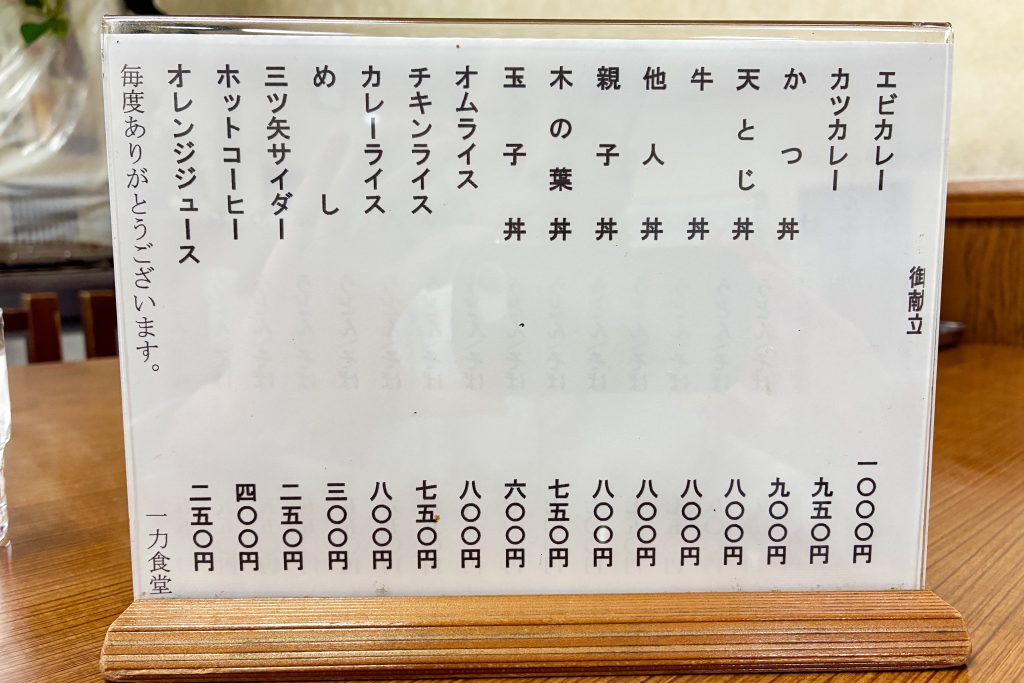 御献立
エビカレー 一〇〇〇円
カツカレー 九五〇円
かつ丼 九〇〇円
天とじ丼 八〇〇円
牛丼 八〇〇円
他人丼 八〇〇円
親子丼 八〇〇円
木の葉丼 七五〇円
玉子丼 六〇〇円
オムライス 八〇〇円
チキンライス 七五〇円
カレーライス 八〇〇円
めし 三〇〇円
三ツ矢サイダー 二五〇円
ホットコーヒー 四〇〇円
オレンジジュース 二五〇円
毎度ありがとうございます。
一力食堂